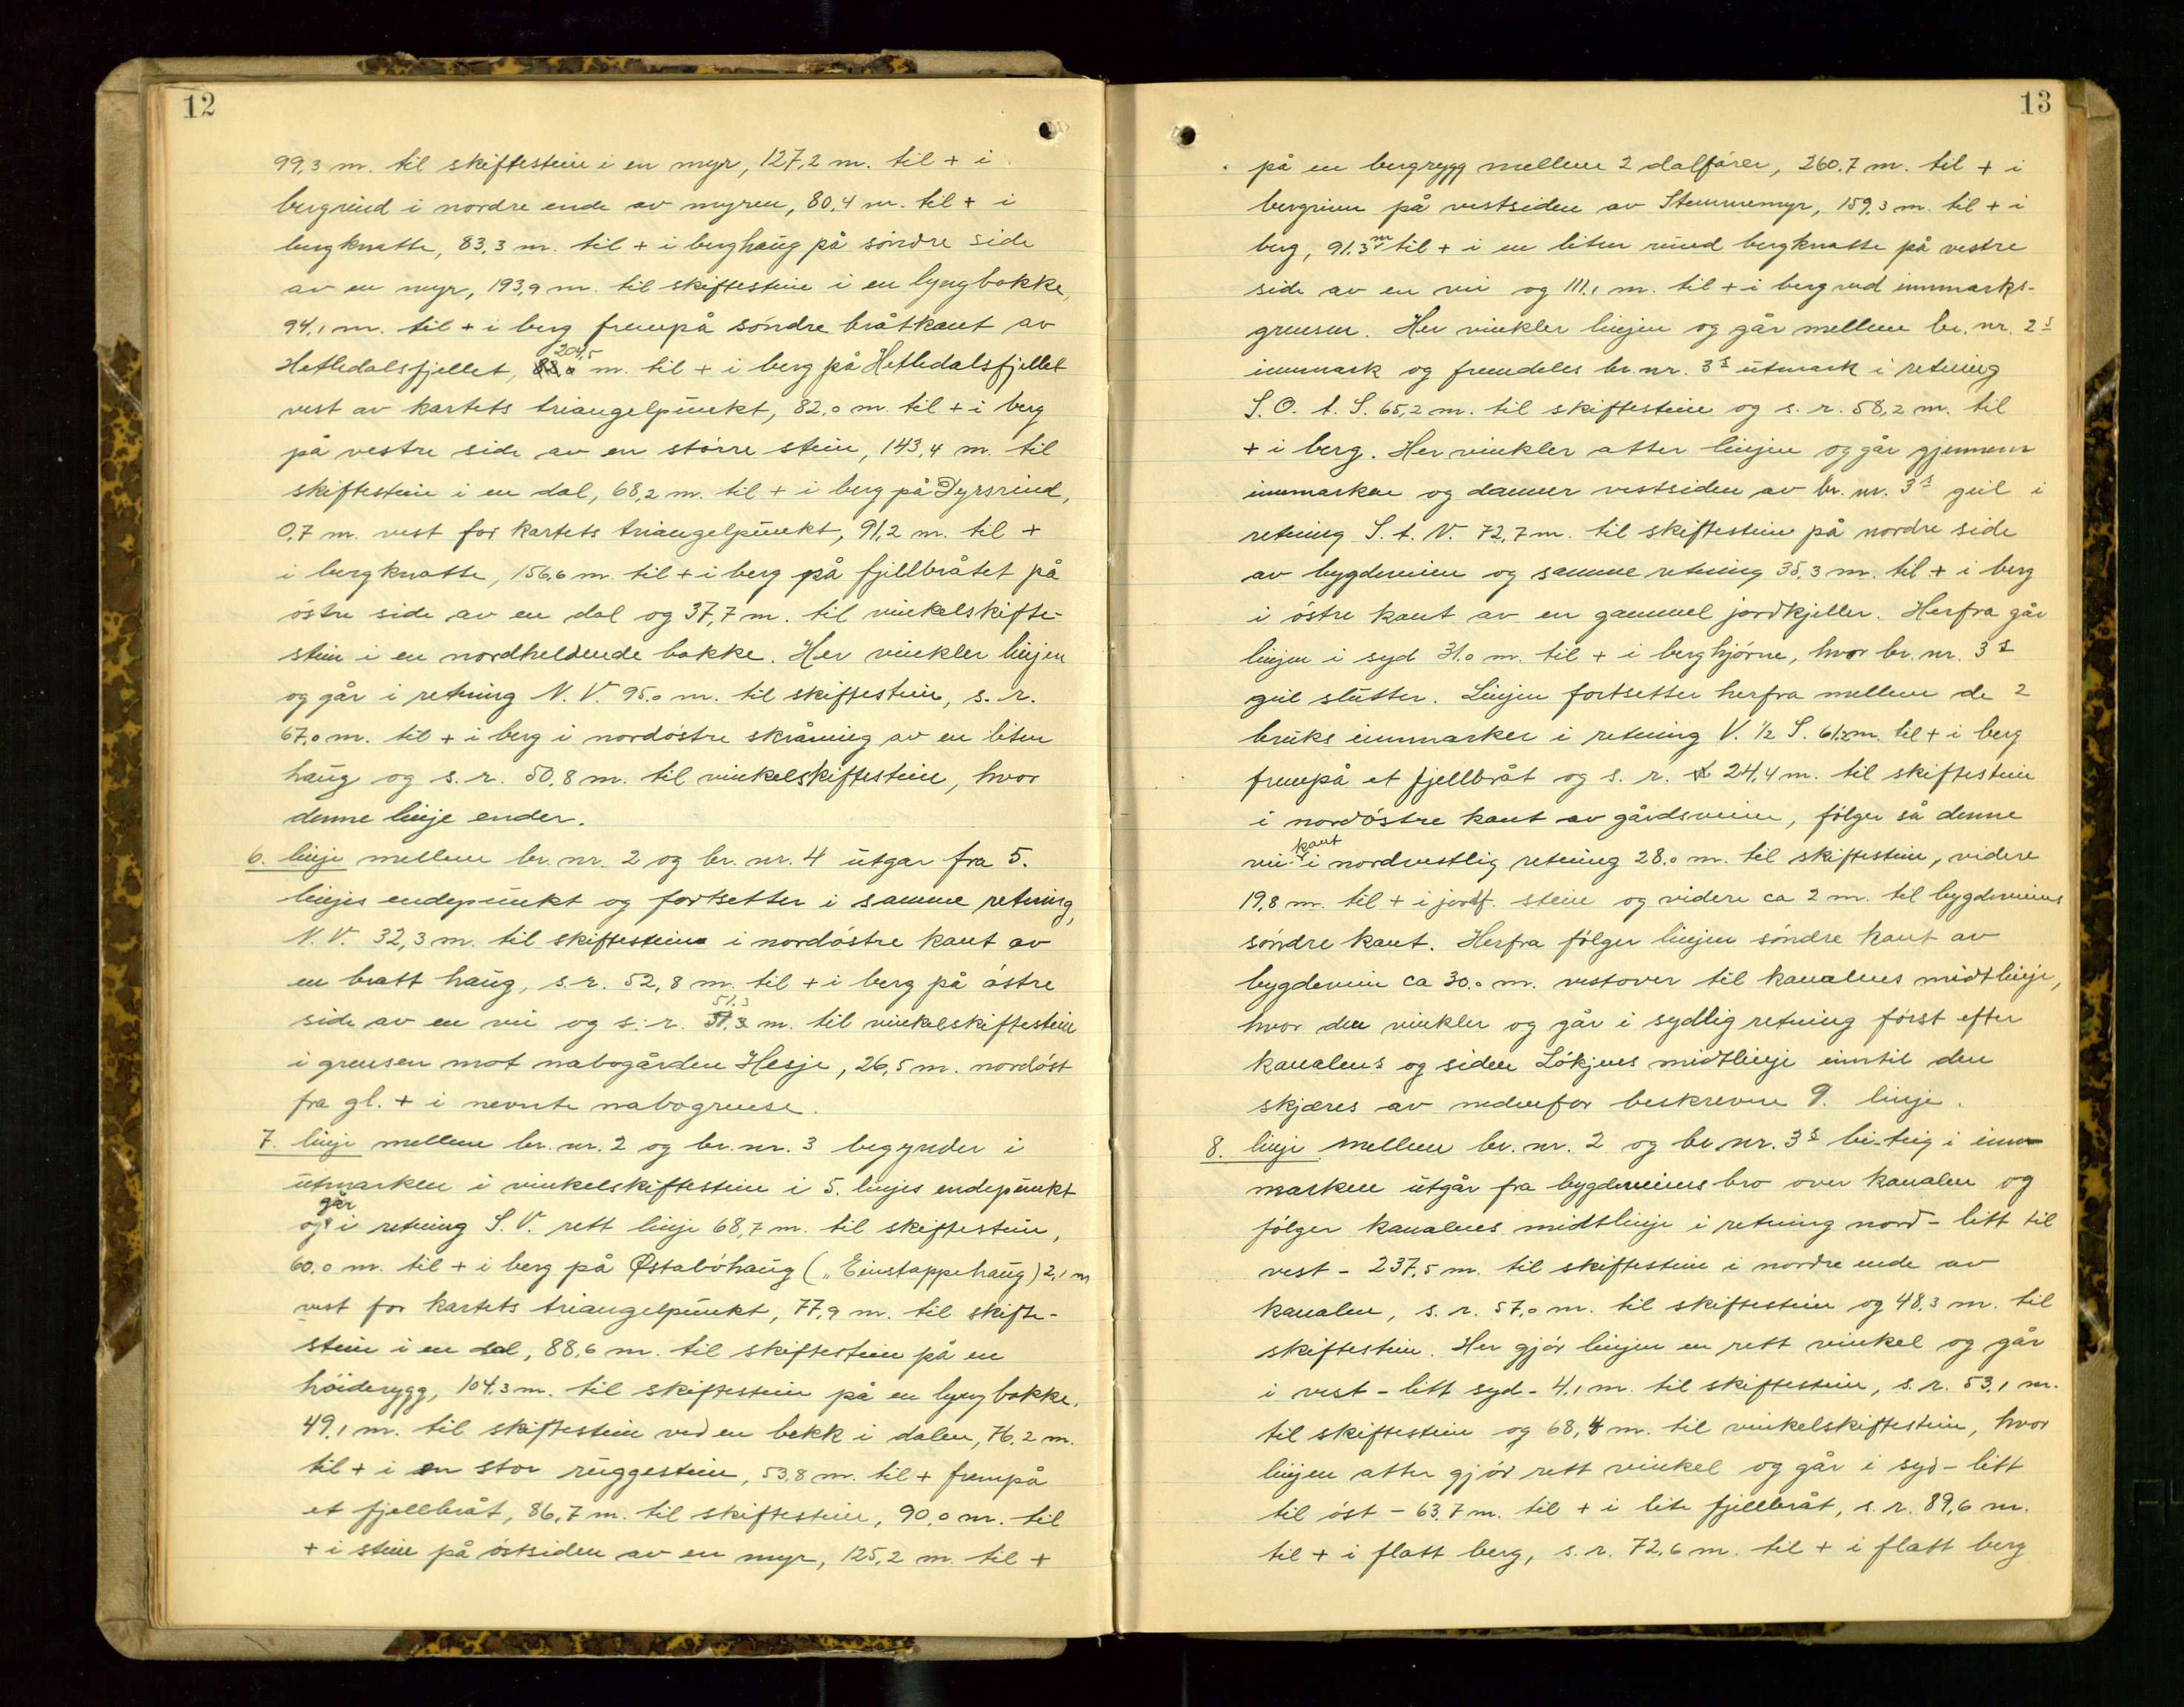 12
99,3 m. til skiftestein i en myr, 127,2 m. til + i
bergrind i nordre ende av myren, 80,4 m. til + i
bergknatte, 83,3 m. til + i berghaug på söndre side
av en myr, 193,9 m. til skiftestein i en lyngbakke,
94,1 m. til + i berg frempå söndre bråtkant av
204,5
Hetledalsfjellet, m. til + i berg på Hetledalsfjellet
vest av kartets triangelpunkt, 82,0 m. til + i berg
på vestre side av en större stein, 143,4 m. til
skiftestein i en dal, 68,2 m. til + i berg på Dyrsrind,
0,7 m. vest for kartets triangelpunkt, 91,2 m. til +
i bergknatte, 156,6 m. til + i berg på fjellbråtet på
östre side av en dal og 37,7 m. til vinkelskifte-
stein i en nordheldende bakke. Her vinkler linjen
og går i retning N. V. 95,0 m. til skiftestein, s. r.
67,0 m. til + i berg i nordöstre skråning av en liten
haug og s. r. 50,8 m. til vinkelskiftestein, hvor
denne linje ender.
6. linje mellem br. nr. 2 og br. nr. 4 utgar fra 5.
linjes endepunkt og fortsetter i samme retning,
N. V. 32,3 m. til skiftestein i nordöstre kant av
en bratt haug, s. r. 52,8 m. til + i berg på östre
51,3
side av en vei og s. r. m. til vinkelskiftestein
i grensen mot nabogården Hesje, 26,5 m. nordöst
fra gl. + i nevnte nabogrense.
7. linje mellem br. nr. 2 og br. nr. 3 begynder i
utmarken i vinkelskiftestein i 5. linjes endepunkt
går
og i retning S. V. rett linje 68,7 m. til skiftestein,
60,0 m. til + i berg på Østaböhaug („Einstappehaug) 2,1 m
vest for kartets triangelpunkt, 77,9 m. til skifte-
stein i en dal, 88,6 m. til skiftestein på en
höiderygg, 104,3 m. til skiftestein på en lyngbakke,
49,1 m. til skiftestein ved en bekk i dalen, 76,2 m.
til + i en stor ruggestein, 53,8 m. til + frempå
et fjellbråt, 86,7 m. til skiftestein, 90,0 m. til
+ i stein på östsiden av en myr, 125,2 m. til +
13
på en bergrygg mellem 2 dalförer, 260,7 m. til + i
bergrinn på vestsiden av Stemmemyr, 159,3 m. til + i
berg, 91,3 m til + i en liten rund bergknatte på vestre
side av en vei og 111,1 m. til + i berg ved innmarks-
grensen. Her vinkler linjen og går mellem br. nr. 2s
innmark og fremdeles br. nr. 3s utmark i retning
S. O. t. S. 65,2 m. til skiftestein og s. r. 58,2 m. til
+ i berg. Her vinkler atter linjen og går gjennem
innmarken og danner vestsiden av br. nr. 3s geil i
retning S. t. V. 72,7 m. til skiftestein på nordre side
av bygdeveien og samme retning 35,3 m. til + i berg
i östre kant av en gammel jordkjeller. Herfra går
linjen i syd 31,0 m. til + i berghjörne, hvor br. nr. 3s
geil slutter. Linjen fortsetter herfra mellem de 2
bruks innmarker i retning V. ½ S. 61,2 m. til + i berg
frempå et fjellbråt og s. r. 24,4 m. til skiftestein
i nordöstre kant av gårdsveien, fölger så denne
kant
vei- i nordvestlig retning 28,0 m. til skiftestein, videre
19,8 m. til + i jordf. stein og videre ca 2 m. til bygdeveiens
söndre kant. Herfra fölger linjen söndre kant av
bygdeveien ca 30,0 m. vestover til kanalens midtlinje,
hvor den vinkler og går i sydlig retning först efter
kanalens og siden Lökjens midtlinje inntil den
skjæres av nedenfor beskrevne 9. linje.
8. linje mellem br. nr. 2 og br. nr. 3s bi-teig i inn-
marken utgår fra bygdeveiens bro over kanalen og
fölger kanalens midtlinje i retning nord - litt til
vest - 237,5 m. til skiftestein i nordre ende av
kanalen, s. r. 57,0 m. til skiftestein og 48,3 m. til
skiftestein. Her gjör linjen en rett vinkel og går
i vest - litt syd - 4,1 m. til skiftestein, s. r. 53,1 m.
til skiftestein og 68,4 m. til vinkelskiftestein, hvor
linjen atter gjör rett vinkel og går i syd - litt
til öst - 63,7 m. til + i lite fjellbråt, s. r. 89,6 m.
til + i flatt berg, s. r. 72,6 m. til + i flatt berg